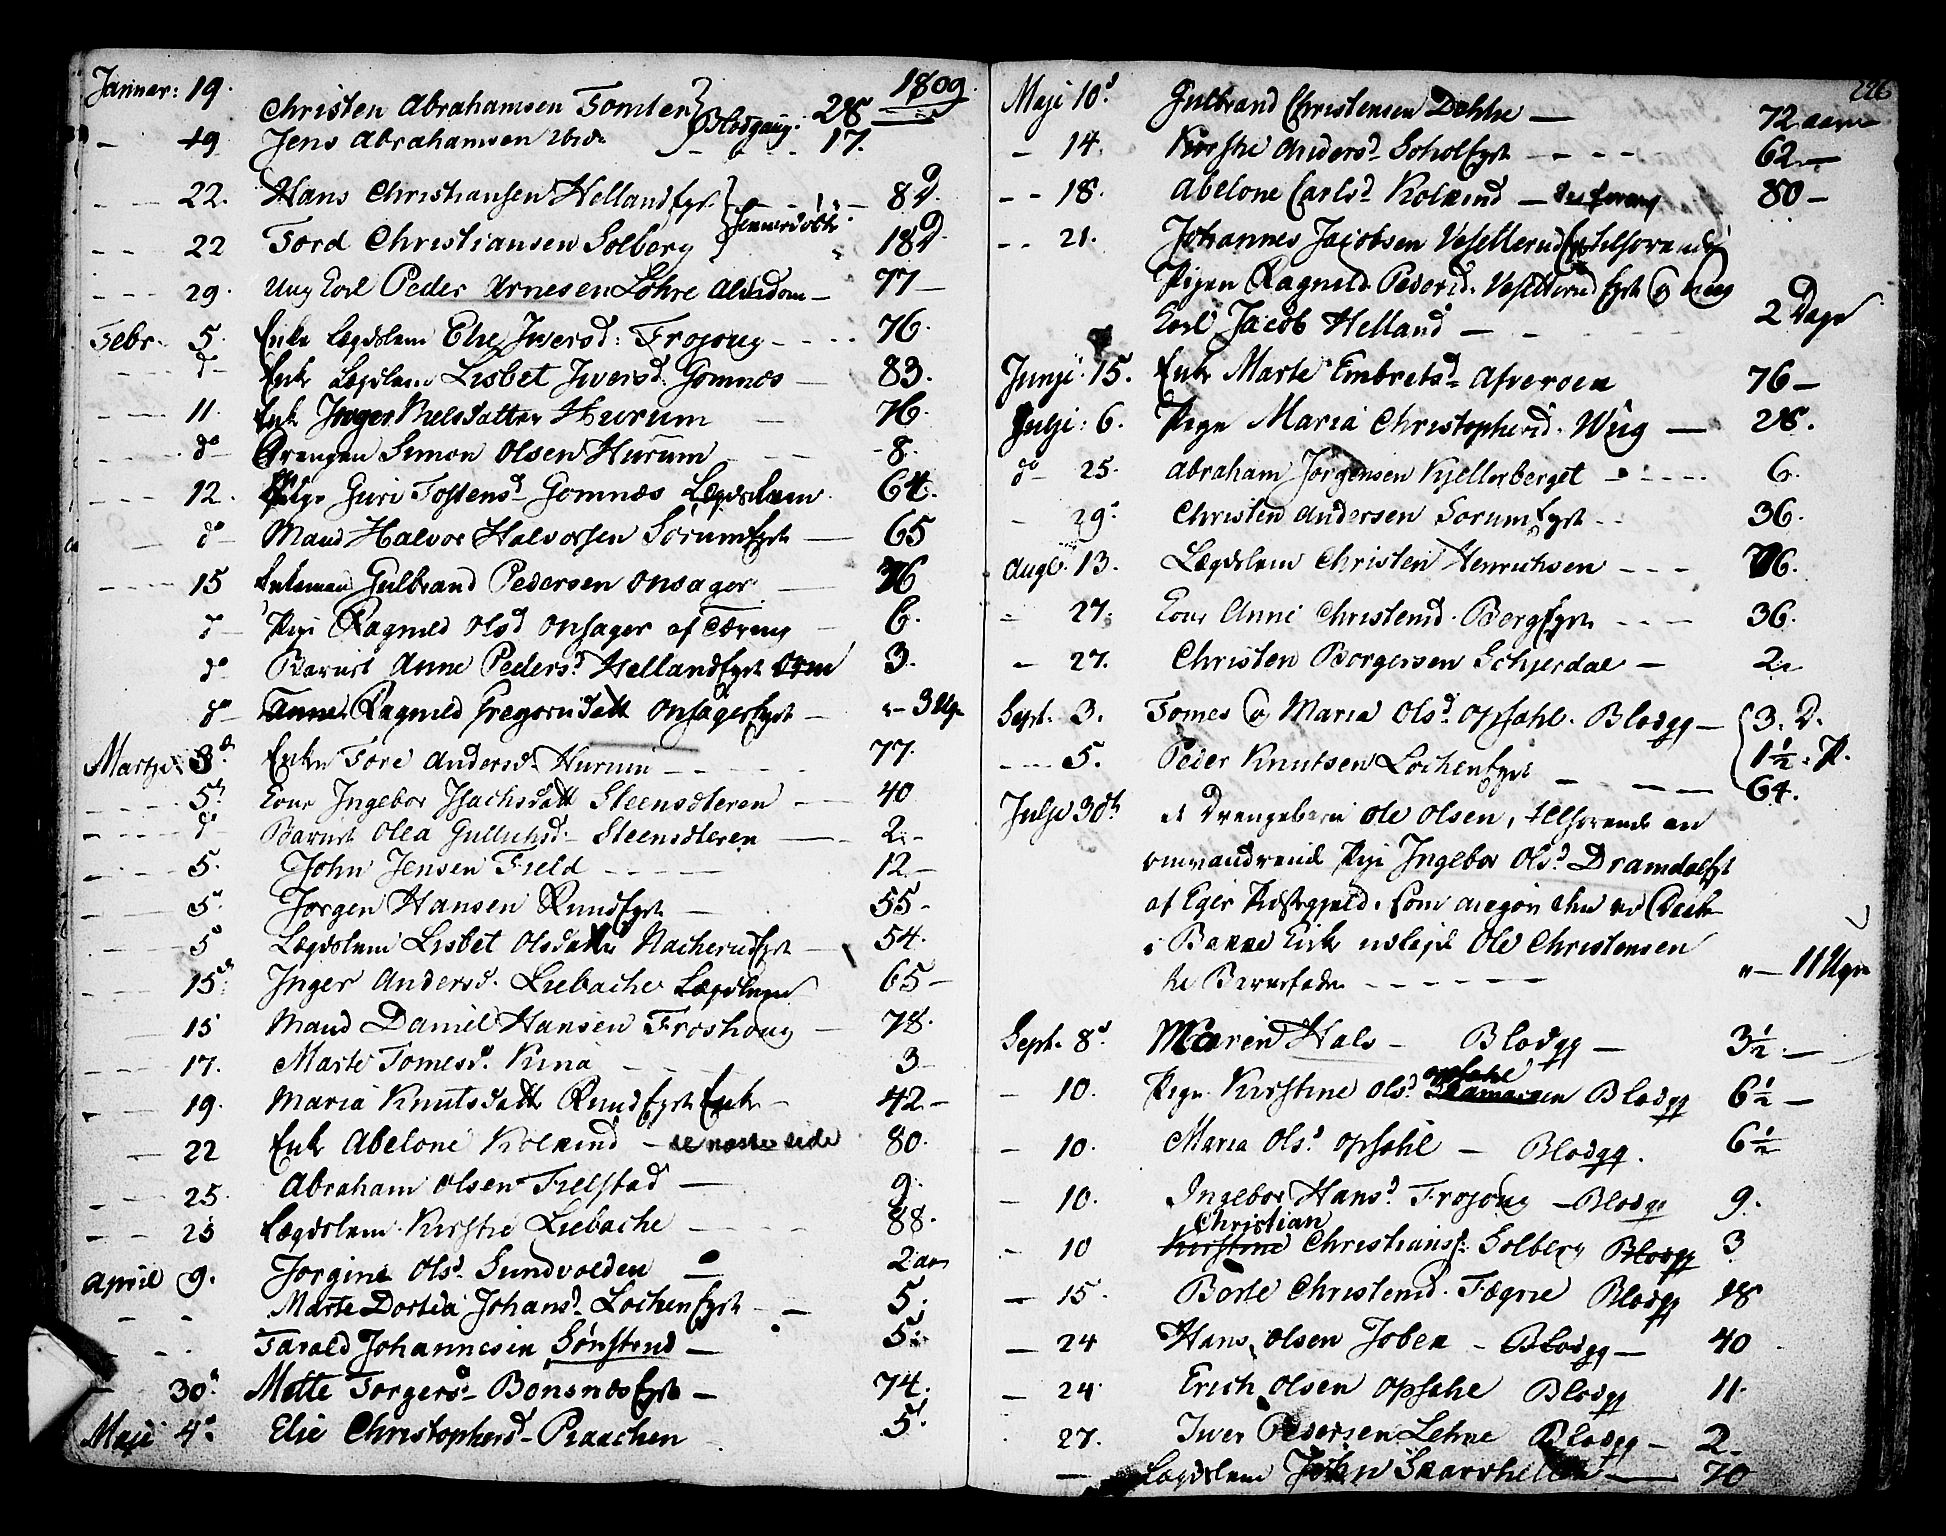 Januar: 19. Christen Abrahamsen Tomter 28 1809.
- 19 Jens Abrahamsen ibid. Blodgang: 17.
- - 22. Hans Christiansen Hellandeyet 8 D.
- - 22 Tord Christiansen Solberg 18 D
- - - 29. Ung Karl Peder Arnesen Løhre Alderdom - 77 -
Febr. 5. Enke Lægdslem Else Iversd: Frøjoug - - - - 76.
- - - d - Enke Lægdslem Lisbet Iversd. Gomnæs - 83.
- - - 11. Enk Inger Nielsdatter Hurum - 76.
- - - do Drengen Simon Olsen Hurum - 8.
- - - 12. Pige Guri Tostensd. Gomnæs Lægdslem 64.
- do - Mand Halvor Halvorsen Sørumeyet - 65
- - - - 15 Enkeman Gulbrand Pedersen Onsager 76
d - Pige Ragnild Olsd Onsager af Tæring - 6.
do Barnet Anne Pedersd. Hellandeyet 3.
do - Ragnild Gregorisdatt Onsagereyet - " - 3 Ug.
Martji 3d. Enken Tore Andersd. Hurum - - - 77.
- - - 5d. Kone Ingebor Isachsdatt Steensæteren - 40
- - - - d - Barnet Olea Gulichsd. Steensæteren - 2 -
- - - 5. John Jensen Field - - - - 12 -
- - 5. Jørgen Hansen Rundeyet - 55 -
- - 5 Lægdslem Lisbet Olsdatter Nacherudeyet - 54.
- - - 15d. Inger Andersd. Liebache Lægdslem 65 -
- - 15 Mand Daniel Hansen Froshoug - 78.
- - 17. Marte Tomesd. Kina - - - - 3
- - 19. Maria Knutsdatt Rundeyet Enke - 42 -
- - 22 Enk Abelone Kolrud - se næste side 80.
- 25. Abraham Olsen Fielstad - 9.
- - 25 Lægdslem Kirstie Liebache - - - - 88.
April 9. Jorgine Olsd. Sundvolden - 2 aar
- - Marte Dortea Johansd. Locheneyet - - 5.
- - - Tarald Johannesen Sønsterud - 5.
- 30d. Mette Torgersd. Bonsnæseyet - 74.
Maji 4d. Elie Christophersd. Braachen - 5.
226
Maji 10d Gulbrand Christensen Dohke - 72 aar
- 14. Kirstie Andersd. Soholteyet - - - - 62 -
- - 18. Abelone Carlsd. Kolrud - 80 -
- - 21. Johannes Jacobsen Veselterudey tilhørende
Pigen Ragnild Pedersd. Veselterudeyet og ung
Karl Jacob Helland - - 2 Dage
Junji 15. Enk Marte Embretsd. Afveroen 76 -
Julji: 6. Pige Maria Christophersd. Wiig - 28.
do - 25. Abraham Jorgensen Kjellerberget - - - - 6.
- 29d Christen Andersen Sorumeyet - - 36.
Augt. 13. Lægdslem Christen Henrichsen - - - 76.
- 27. Kone Anne Christensd. Bergeyet - - - 36.
- 27. Christen Borgersen Schjerdal - 2 -
Sept. 3. Tomes og Maria Olsd. Opsahl. Blodgg - 3. D.
- - - 5. Peder Knutsen Locheneyet 1½. P.
- - - - 64.
Julji 30th et Drengebarn Ole Olsen, tilhørende en
omvandrende Pige Ingebor Olsd. Dramdaleyt
af Eger Præstegjeld. som
i Barne udlagde Ole Christensen
til Barnefader - - - - - - " - 11 Uger
Sept. 8d Maren Hals - Blodgg - 3½ -
- 10. Pige Kirstine Olsd. Opsahl Blodgg 6½ -
- 10. Maria Olsd. Opsahl - Blodgg. 6½
- 10. Ingebor Hansd. Frøjoug - Blodgg 9.
- 10 Christian Christiansf: Solberg Blodgg 3
- 15. Borte Christensd. Fægrie Blodgg 18
- 24 Hans Olsen Joben - Blodgg - 40
- 24. Erich Olsen Opsahl Blodgg 11.
27. Iver Pedersen Lehne Blodgg - 2 -
- Lægdslem John - 70